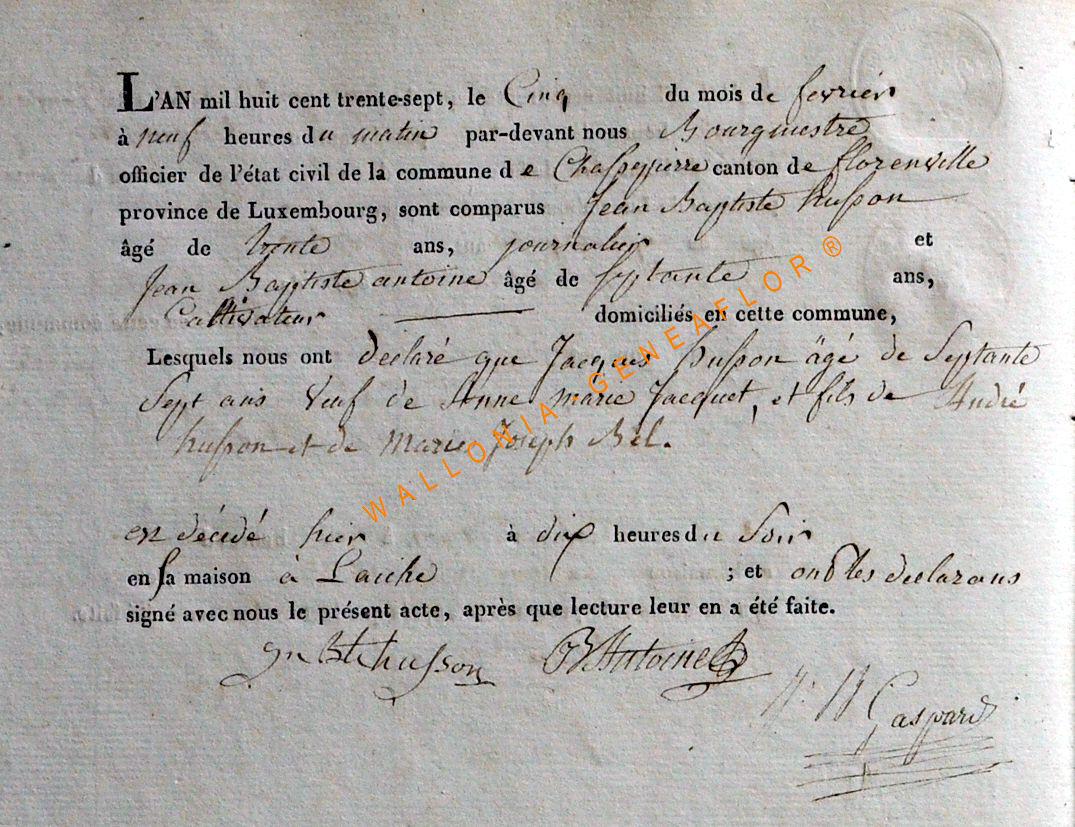 L'AN mil huit cent trente-sept, le Cinq du mois de fevrier
à neuf heures du matin par-devant nous Bourgmestre
officier de l'état civil de la commune de Chassepierre canton de florenville
province de Luxembourg, sont comparus Jean Baptiste husson
âgé de trente ans, journalier et
Jean Baptiste antoine âgé de septante ans,
Cultivateur domiciliés en cette commune,
Lesquels nous ont declaré que Jacques husson âgé de Septante
Sept ans Veuf de Anne marie Jacquet, et fils de André
husson et de Marie Joseph Bel.
est décédé hier à dix heures du Soir
en sa maison à Laiche ; et ont les declarans
signé avec nous le présent acte, après que lecture leur en a été faite.
Jn Bte husson JB Antoine
Gaspard
WALLONIA-GENEAFLOR®